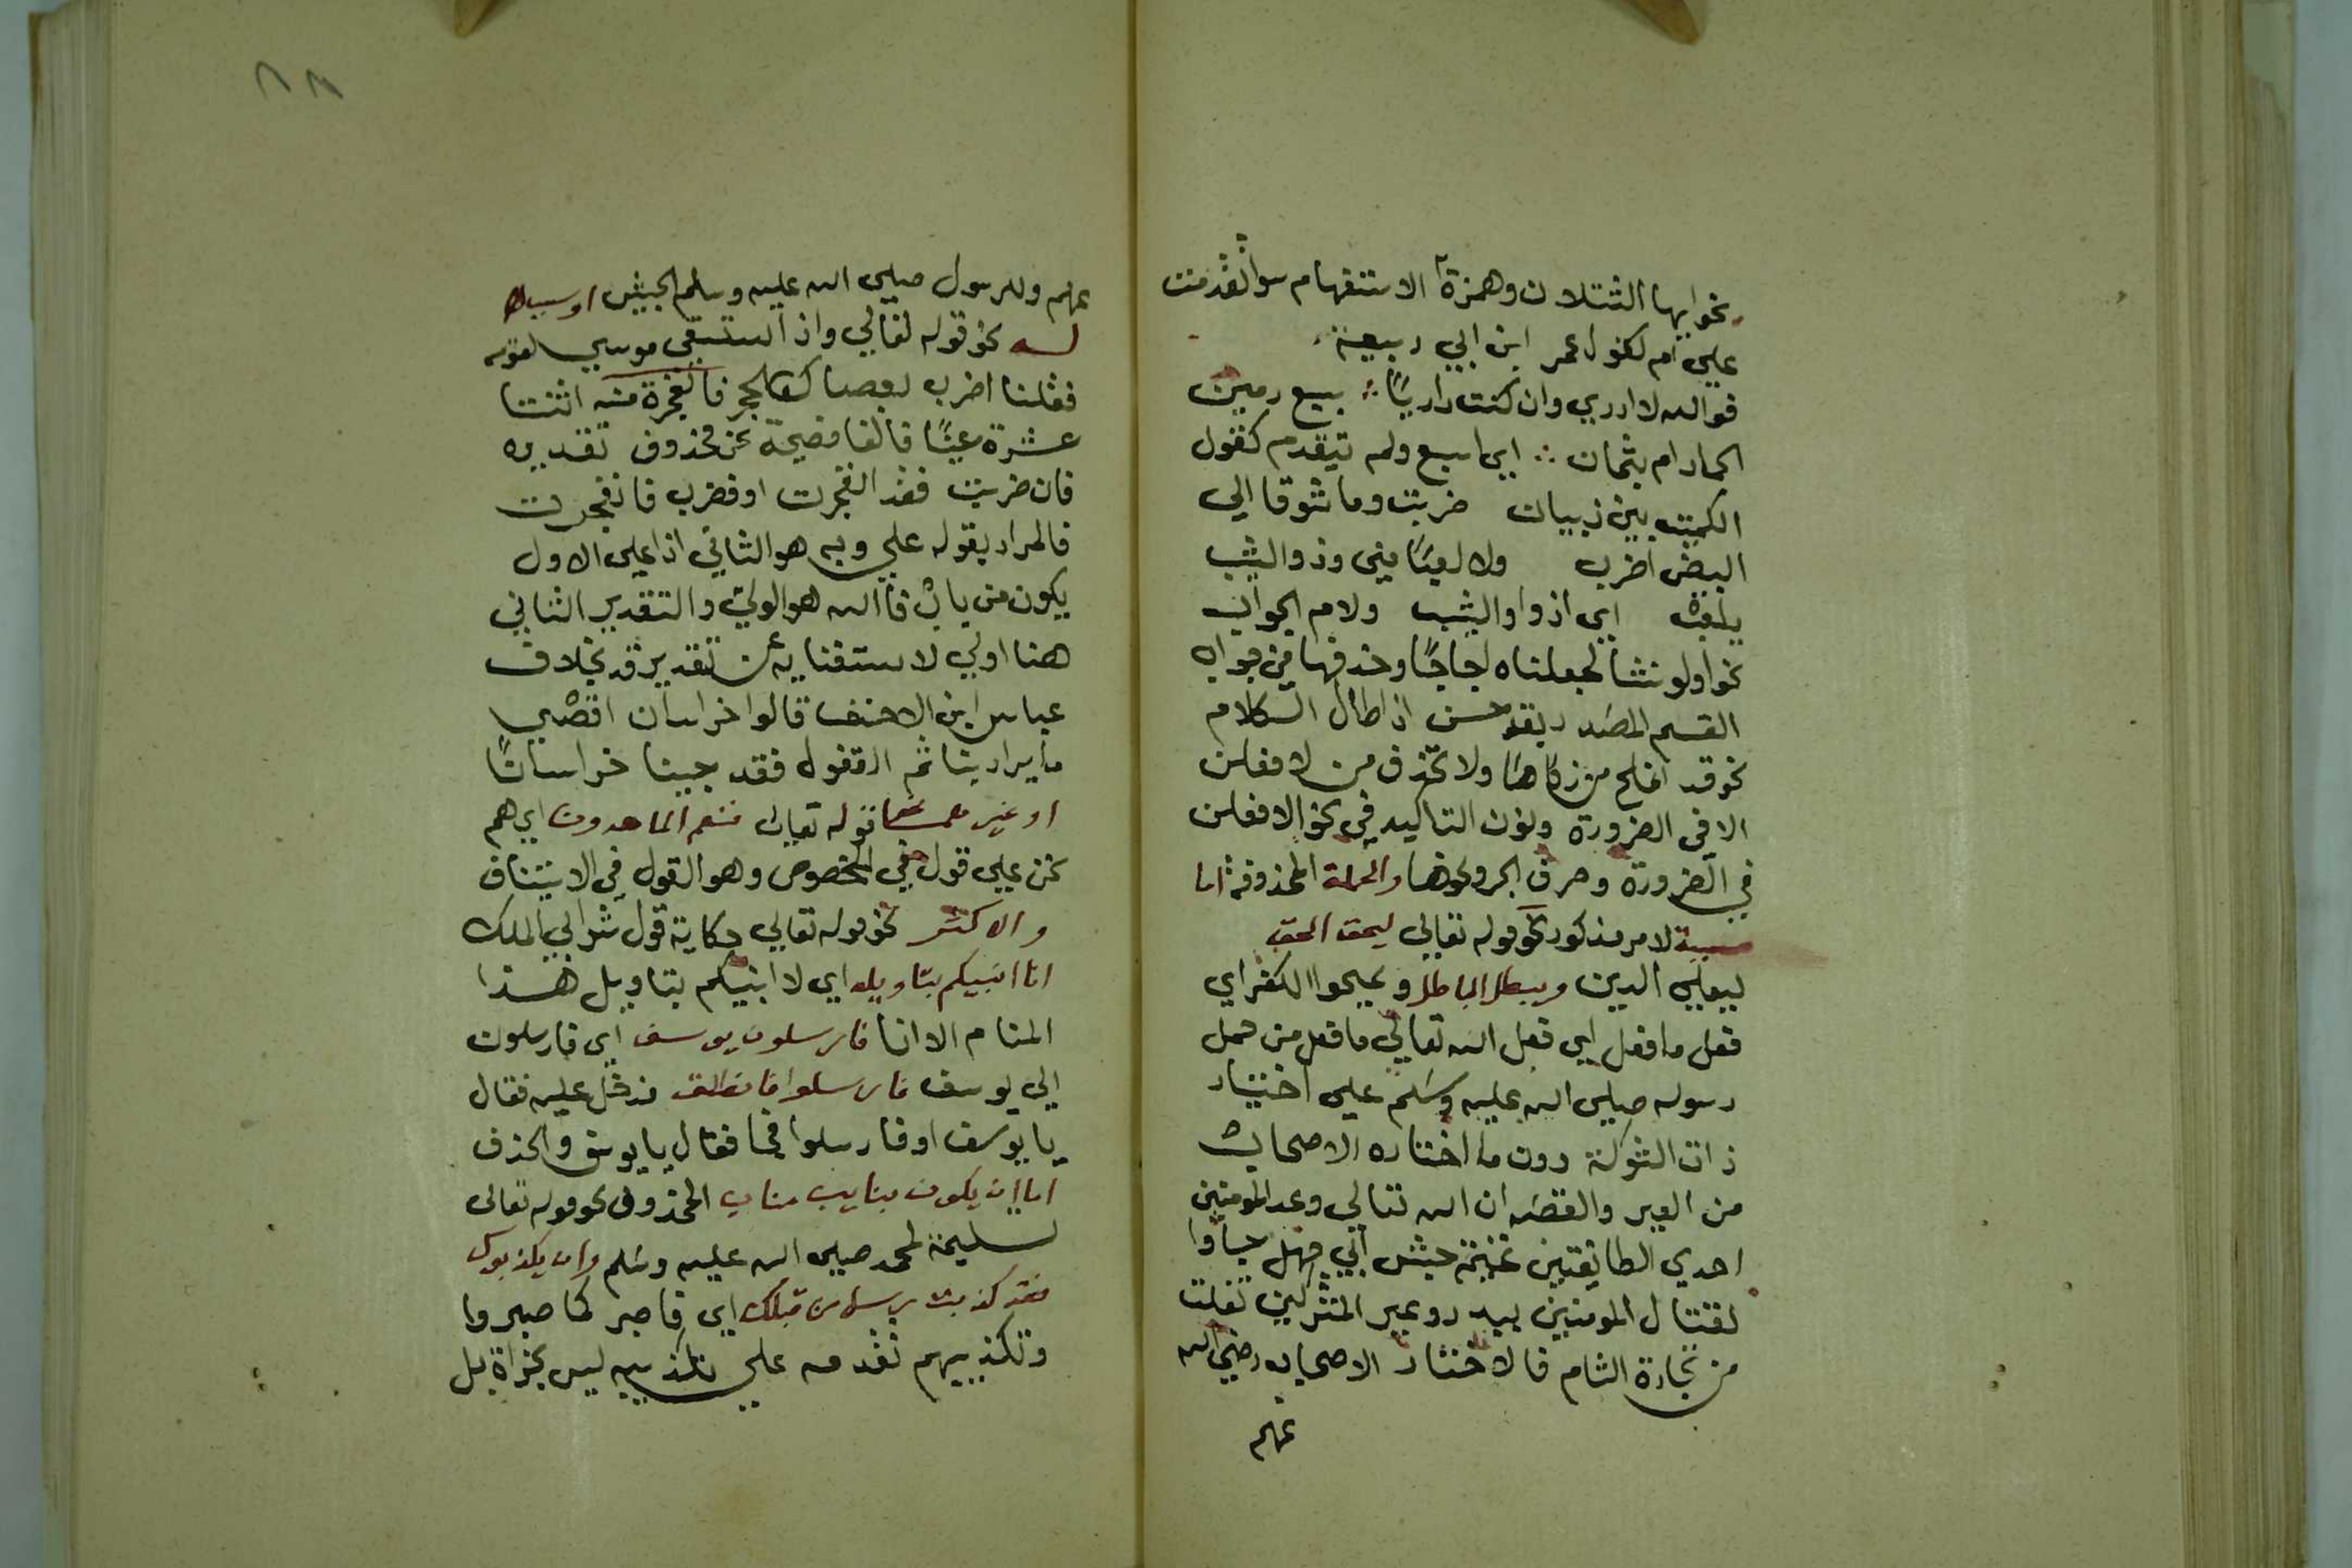 نحو ايها الثتلان وهمزة الاستفهام سوا تقدمت
علي ام لكقول عمر ابن ابي ربيعة
فوالله لا ادري وان كنت داريًا ∴ بسبع رمين
الجمار ام بثمان ∴ اي ابسبع ولم تيقدم كقول
الكميت بين ذبيان طربت وما شوقا الي
البيض اضرب ولا لعبًا مني وذو الشيب
يلعب اي اذ واو الشيب ولام الجواب
نحو او لو نشا لجعلناه اجاجًا وحذفها من جواب
القسم المصدر بقد حسن اذا طال الكلام
نحو قد افلح من زكاها ولا تحذف من لافعلن
الا في الضرورة ونون التاكيد في نحو الافعلن
في الضرورة وحرف الجر ونحوها والجملة المحذوفة اما
مسببة لامر مذكور نحو قوله تعالي ليحق الحق
ليعلي الدين ويبطل الباطل ويمحوا الكفر اي
فعل ما فعل اي فعل الله تعالي ما فعل من حمل
رسوله صلي الله عليه وسلم علي اختيار
ذات الشوكة دون ما اختاره الاصحاب
من العير والقصه ان الله تعالي وعد المومنين
احدي الطايفتين غنيمة جيش ابي جهل جياوا
لقتال المومنين ببدر وعير المشركين تفلتت
من تجارة الشام فالاختار الاصحاب رضي الله
عنهم
عنهم وللرسول صلي الله عليه وسلم الجيش او سببا
له نحو قوله تعالي واذ استسقي موسي لقومه
فقلنا اضرب بعصاك الحجر فانفجرة منه اثنتا
عشرة عينًا فالفا فصيحة عن محذوف تقديره
فان ضربت فقد انفجرت او فضرب فانفجرت
فالمراد بقوله علي وبه هو الثاني اذا علي الاول
يكون من باب فالله هو الولي والتقدير الثاني
هنا اولي لاستغنايه عن تقدير قد بخلاف
عباس ابن الاحنف قالوا خراسان اقصي
ما يراد بنا ثم القفول فقد جينا خراسانًا
او غير قوله تعالي فنعم الماهدون اي هم
نحن علي قول في المخصوص وهو القول في الاستيناف
والاكثر نحو قوله تعالي حكاية قول شرابي الملك
انا انبيكم بتاويله اي لا انبيكم بتاويل هذا
المنام الا انا فارسلون يوسف اي فارسلون
الي يوسف فارسلوا فانطلق فدخل عليه فقال
يا يوسف او فارسلوا فجا فقال يا يوسف والحذف
اما ان يكون بنايب مناب المحذوف نحو قوله تعالي
تسلية لمحمد صلي الله عليه وسلم وان يكذبوك
فقد كذبت رسل من قبلك اي فاصبر كما صبروا
وتكذيبهم تقدمه علي تكذيبه ليس بجزاة بل